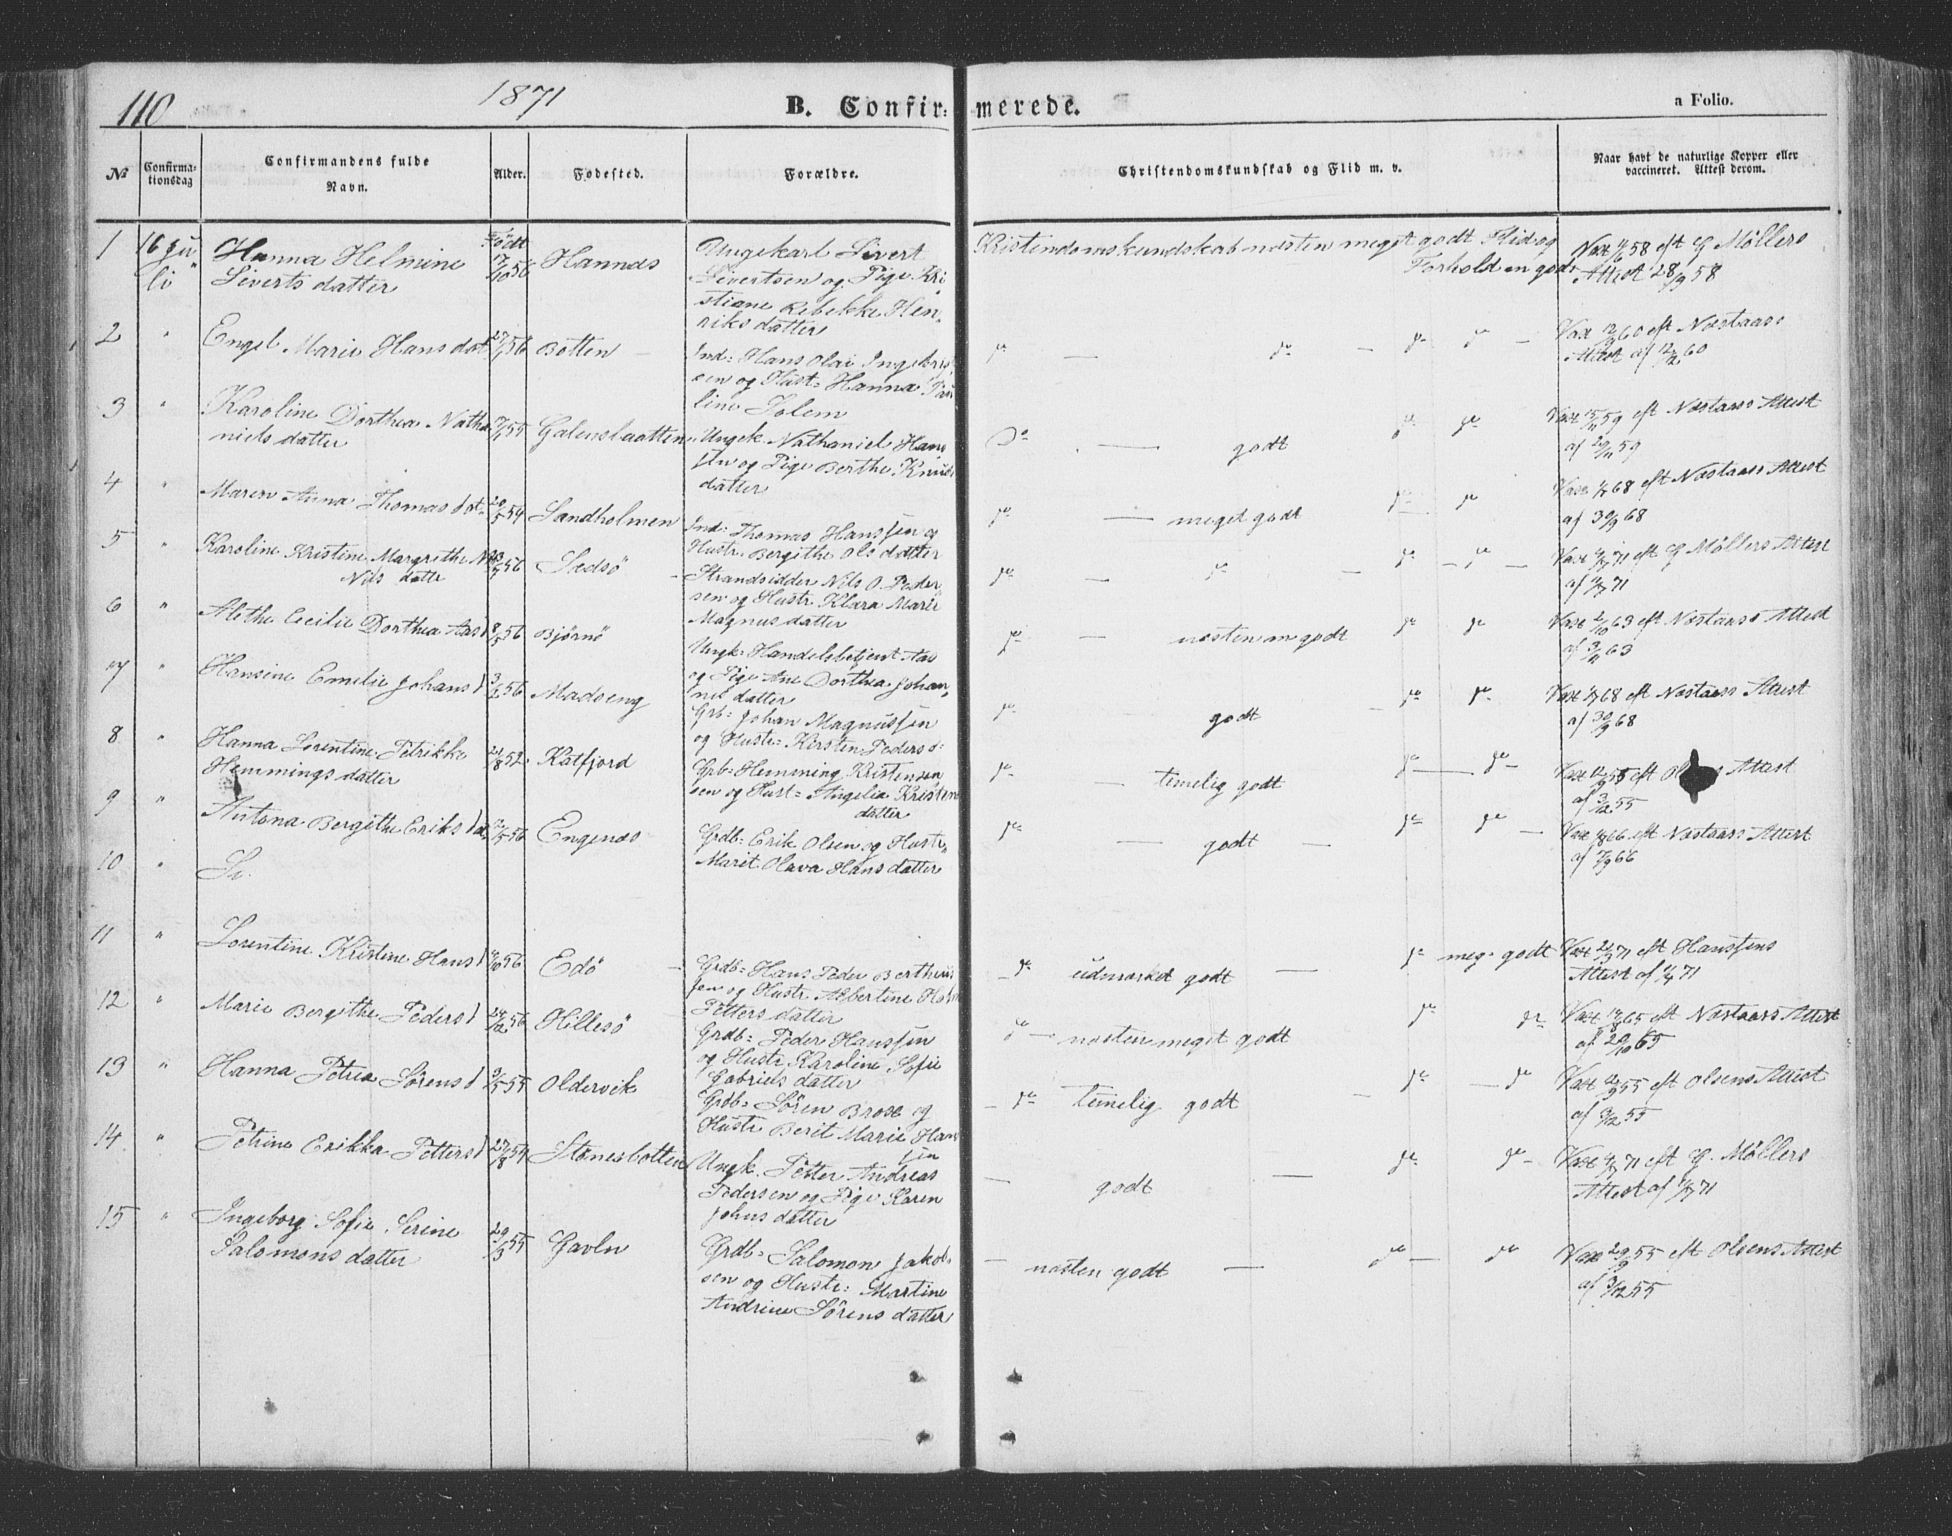 110
1871
B. Confirmerede.
a Folio.
№
Confirmationsdag
Confirmandens fulde Navn.
Alder.
Fødested.
Forældre.
Christendomskundskab og Flid m. v.
Naar havt de naturlige Kopper eller vaccineret. Attest derom.
1
16 Juli
Hanna Helmine
Siverts datter
Født
56
Hannæs
Ungekarl Sivert
Sivertsen og Pige Kri
stiane Rebekke Hen
riks datter
Kristendomskundskab næsten meget godt Flid og
Forhold m godt
Vax 58 eft G Møllers
Attest 28/9 58
2
"
Engel Marie Hans dat
56
Botten
Ind: Hans Olai Ingebrigt
sen og Hust: Hanna Pau
line Solem
do — do — do do —
Vax 60 eft Næstaass
Attest af 12/12 60
3
"
Karoline Dorthea Natha
niels datter
55
Galenslaatten
Ungk. Nathaniel Hans
sen og Pige Berthe Knuds
datter
Do — godt do do
Vax 59 eft Næstaass Attest
af 59
4
"
Maren Anna Thomas dat
54
Sandholmen
Ind: Thomas Hanssen og
Hustr. Bergithe Ols datter
do — meget godt do do
Vax 68 eft Næstaass Attest
af 30/9 68
5
"
Karoline Kristine Margrethe
Nils datte
56
Sedsö
Strandsidder Nils O. Peder
sen og Hustr Klara Marie
Magnus datter
do — do — do — do —
Vax 71 eft G Møllers Attest
af 71
6
"
Alethe Cecilie Dorthea Aas d
56
Bjørnø
Ungk: Handelsbetjent Aas
og Pige Ane Dorthea Johan
nes datter
do — næsten m godt do do
Vax 63 eft Næstaass Attest
af 63
7
"
Hansine Emelie Johans d
56
Madseng
Grb: Johan Magnussen
og Hustr: Kersten Peders d:
do godt — do do
Vax 68 eft Næstaass Attest
af 30/9 68
8
"
Hanna Lorentine Petrikke
Hemmings datter
24/8 52
Katfjord
Grb: Hemming Kristensen
sen og Hust: Angelia Kristens
datter
do — temelig godt do — do
Vax 55 eft Olsens Attest
af 3/12 55
9
"
Antona Bergithe Eriks dat
56
Engenæs
Grdb: Erik Olsen og Hustr.
Marit Olava Hans datter
do — godt — do do —
Vax 66 eft Næstaass Attest
af 7/9 66
10
"
11
"
Lorentine Kristine Hans d
56
Edö
Grdb: Hans Peder Berthius
sen og Hustr Albertine
Petters datter
— do udmærket godt — do meg. godt
Vax 71 eft Hanssens
Attest af 71
12
"
Marie Bergithe Peders d
24/12 56
Hillesö
Grdb: Peder Hanssen
og Hustr Karoline Sofie
Gabriels datter
do — næsten meget godt do do
Vax 65 eft Næstaass Attest
af 20/10 65
13
"
Hanna Petrea Sörens d
9/5 55
Oldervik
Grdb: Sören Brox og
Hustr Berit Marie Hans
sen
— do temelig godt — do — do
Vax 55 eft Olsens Attest
af 3/12 55
14
"
Petrine Erikka Petters d
27/8 54
Stonesbotten
Ungk. Petter Andreas
Pedersen og Pige Karen
Johns datter
— godt — do do
Vax 71 eft G. Møllers
Attest af 71
15
"
Ingeborg Sofie Serine
Salomons datter
29/3 55
Gavln
Grdb: Salomon Jakob
sen og Hustr: Martine
Andrine Sörens datter
— næsten godt — do — do
Vax 29/9 55 eft Olsens Attest
af 3/12 55